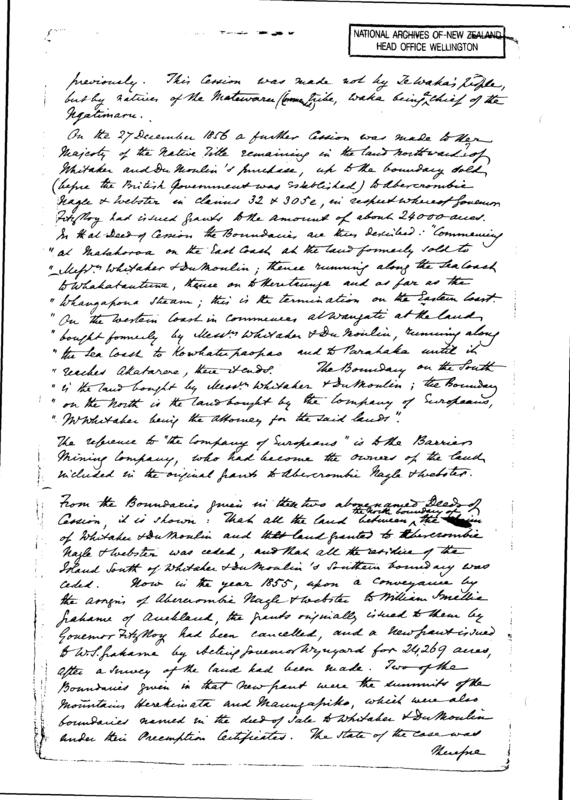 NATIONAL ARCHIVES OF NEW ZEALAND
HEAD OFFICE WELLINGTON
previously. This Cession was made not by Te Waka's people,
but by natives of the tribe, Waka being chief of the
Ngatimaru.
On the 27 December 1856 a further Cession was made to Her
Majesty of the Native Title remaining in the land northward of
Whitaker and DuMoulin's Purchase, up to the boundary sold
(before the British Government was established) to Abercrombie
Nagle & Webster in Claims 32 & 305c, in respect whereof Governor
FitzRoy had issued grants to the amount of about 24000 acres.
In that Deed of Cession the Boundaries are thus described: "Commencing
" at on the East Coast at the land formerly sold to
" Messrs Whitaker & DuMoulin; thence running along the Sea Coast
" to thence on to and as far as the
" Whangapoua stream; this is the termination on the Eastern Coast.
" On the Western Coast it Commences at at the land
" bought formerly by Messrs Whitaker & DuMoulin, running along
" the Sea Coast to and to until it
" reaches Akatarere, there it ends. The Boundary on the South
" is the land bought by Messrs Whitaker & DuMoulin; the Boundary
" on the North is the land bought by the Company of Europeans,
" Mr Whitaker being the Attorney for the said lands".
The reference to "the Company of Europeans" is to the Barrier
Mining Company, who had become the owners of the land
included in the original grants to Abercrombie Nagle & Webster.
From the Boundaries given in these two above named Deeds of
Cession, it is shown: That all the land between the North boundary of the
of Whitaker & DuMoulin and the land granted to Abercrombie
Nagle & Webster was ceded, and that all the residue of the
Island South of Whitaker & DuMoulin's Southern boundary was
ceded. Now in the year 1855, upon a conveyance by
the assigns of Abercrombie Nagle & Webster to William Smellie
Grahame of Auckland, the grants originally issued to them by
Governor FitzRoy had been cancelled, and a New grant issued
to W. S. Grahame by Acting Governor Wynyard for 24,269 acres,
after a survey of the land had been made. Two of the
Boundaries given in that New grant were the summits of the
Mountains Herekimata and Maungapiko, which were also
boundaries named in the deed of Sale to Whitaker & DuMoulin
under their Preemption Certificates. The State of the case was
Therefore